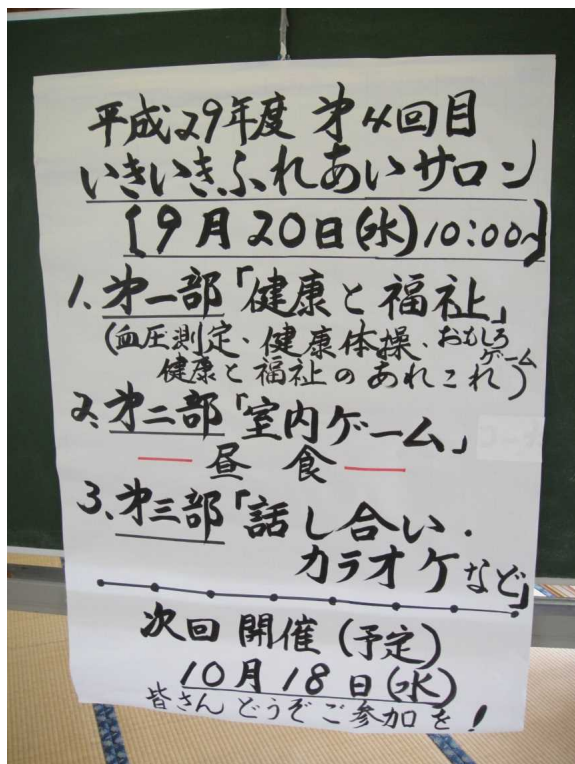 平成29年度 第4回目
いきいきふれあいサロン
[9月20日(水)10:00~]
1.第一部「健康と福祉」
(血圧測定・健康体操・おもしろゲーム
健康と福祉のあれこれ)
2.第二部「室内ゲーム」
昼食
3.第三部「話し合い・
カラオケなど」
次回開催(予定)
10月18日(水)
皆さんどうぞご参加を!